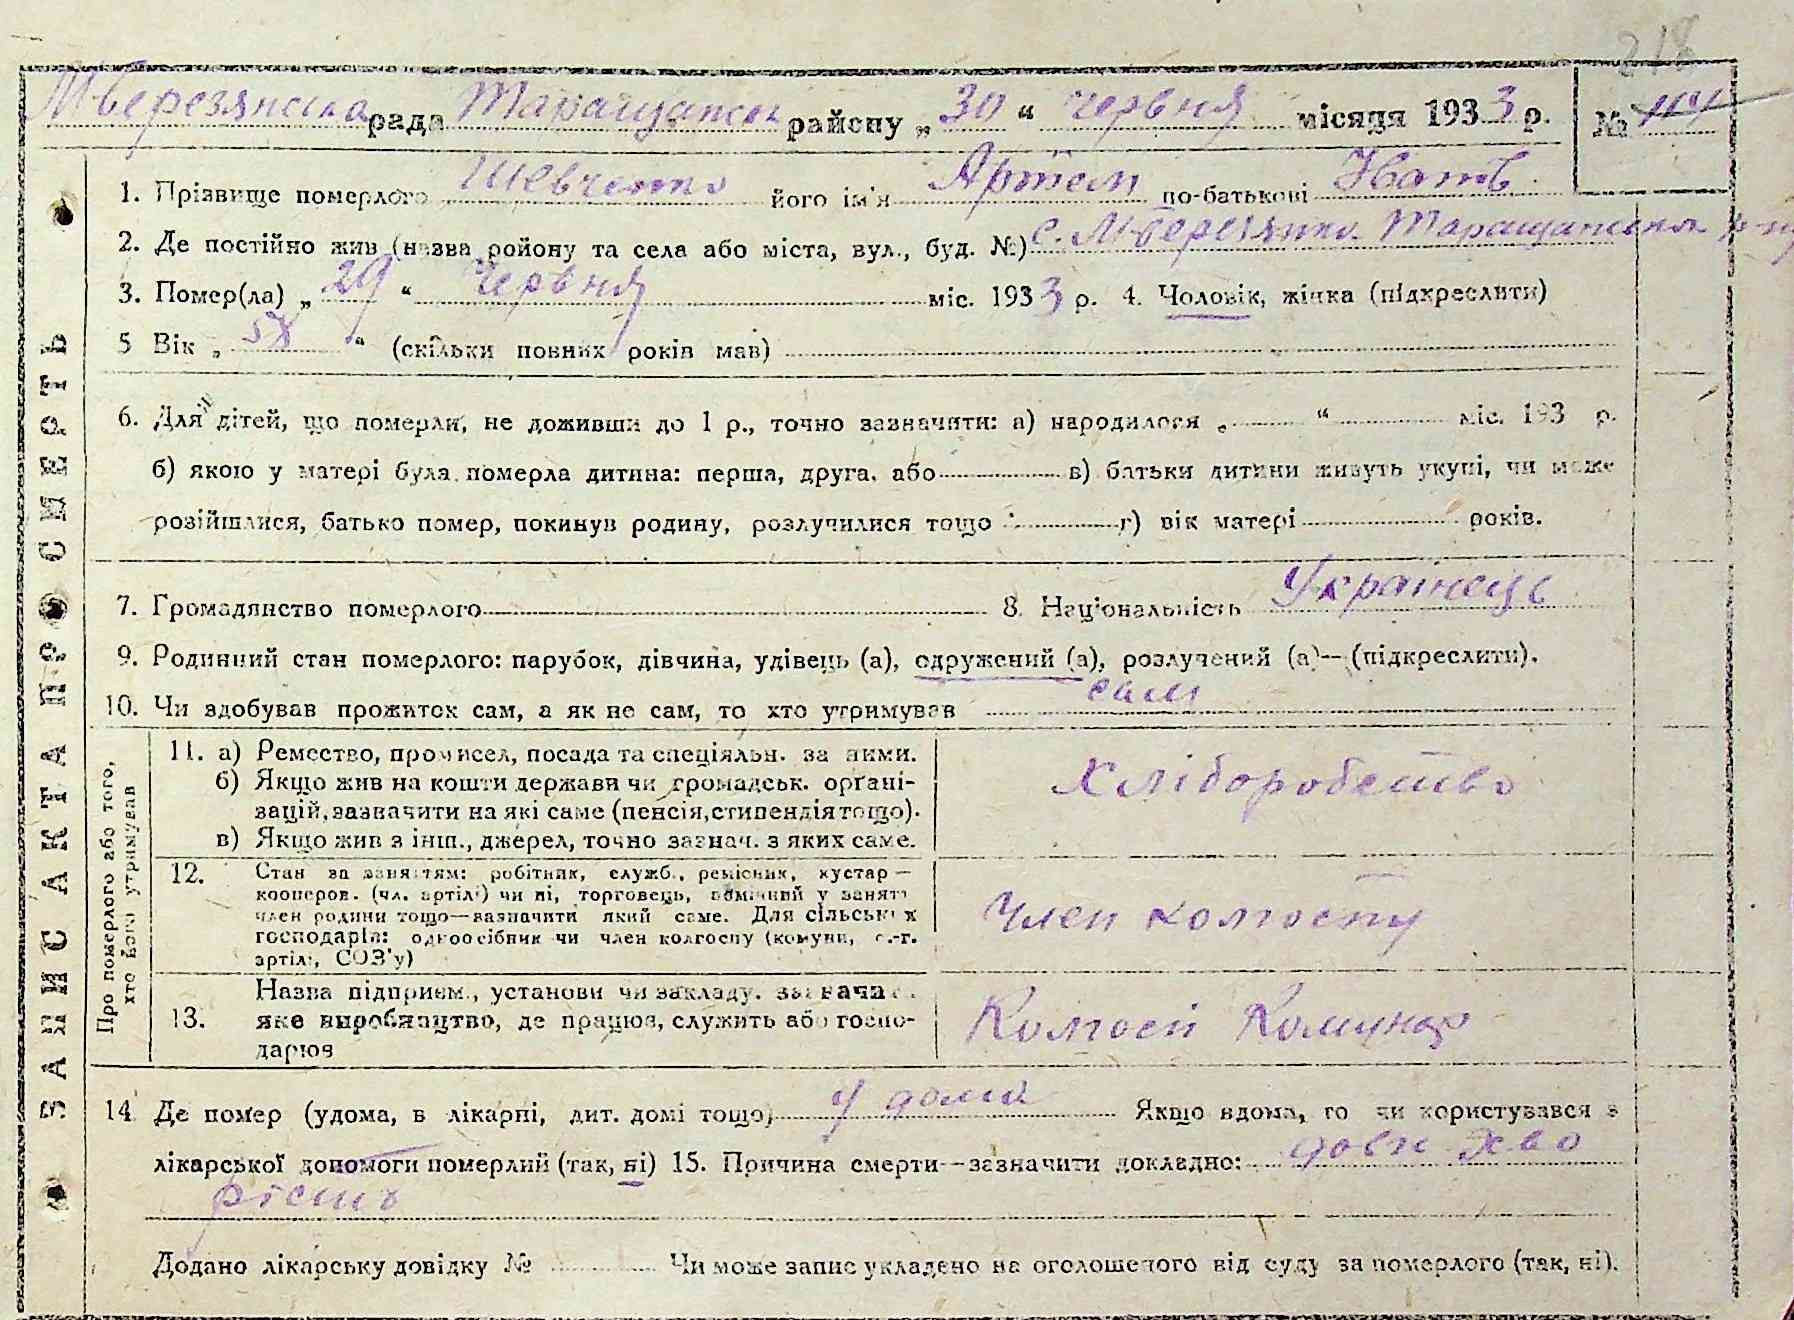 218
М-Березянська рада Таращанськ району „30" червня місяця 1933 р. №
1. Прізвище померлого Шевченко його ім'я Артем по-батькові Ігнатів
2. Де постійно жив (назва району та села або міста, вул., буд. №) с. М-Березянка Таращанського р-ну
3. Помер(ла) „29" Червня міс. 1933 р. 4. Чоловік, жінка (підкреслити)
5 Вік „58" (скільки повних років мав)
6. Для дітей, що померли, не доживши до 1 р., точно зазначити: а) народилося „ " міс. 193 р.
б) якою у матері була померла дитина: перша, друга, або в) батьки дитини живуть укупі, чи може
розійшлися, батько помер, покинув родину, розлучилися тощо г) вік матері років.
7. Громадянство померлого 8. Національність Українець
9. Родинний стан померлого: парубок, дівчина, удівець (а), одружений (а), розлучений (а)—(підкреслити).
10. Чи здобував прожиток сам, а як не сам, то хто утримував сам
ЗАПИС АКТА ПРО СМЕРТЬ
Про померлого або того, хто його утримував
11. а) Ремество, промисел, посада та спеціяльн. за ними.
б) Якщо жив на кошти держави чи громадськ. органі-
зацій, зазначити на які саме (пенсія, стипендія тощо).
в) Якщо жив з інш., джерел, точно зазнач. з яких саме.
Хліборобство
12. Стан за заняттям: робітник, служб., ремісник, кустар—
кооперов. (чл. артілі) чи ні, торговець, помічний у занятт
член родини тощо—зазначити який саме. Для сільських
господарів: одноосібник чи член колгоспу (комуни, с.-г.
артілі, СОЗ'у)
Член колгоспу
Назва підприєм., установи чи закладу. зазнача
13. яке виробництво, де працює, служить або госпо-
дарює
Колгосп Комунар
14 Де помер (удома, в лікарні, дит. домі тощо) У дома Якщо вдома, то чи користувався з
лікарської допомоги померлий (так, ні) 15. Причина смерти—зазначити докладно:
Додано лікарську довідку № Чи може запис укладено на оголошеного від суду за померлого (так, ні).